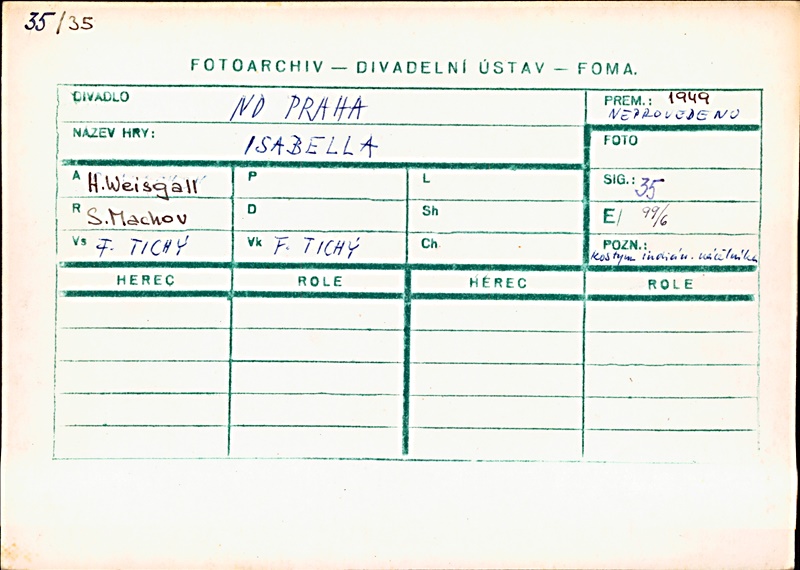 35/35
FOTOARCHIV — DIVADELNÍ ÚSTAV — FOMA.
DIVADLO ND PRAHA
PREM.: 1949
NEPROVEDENO
NÁZEV HRY: ISABELLA
FOTO
A H. Weisgall P L
SIG.: 35
R S. Machov D Sh
E/ 99/6
Vs F. TICHÝ Vk F. TICHÝ Ch
POZN.:
kostým indián. náčelníka
HEREC ROLE HEREC ROLE